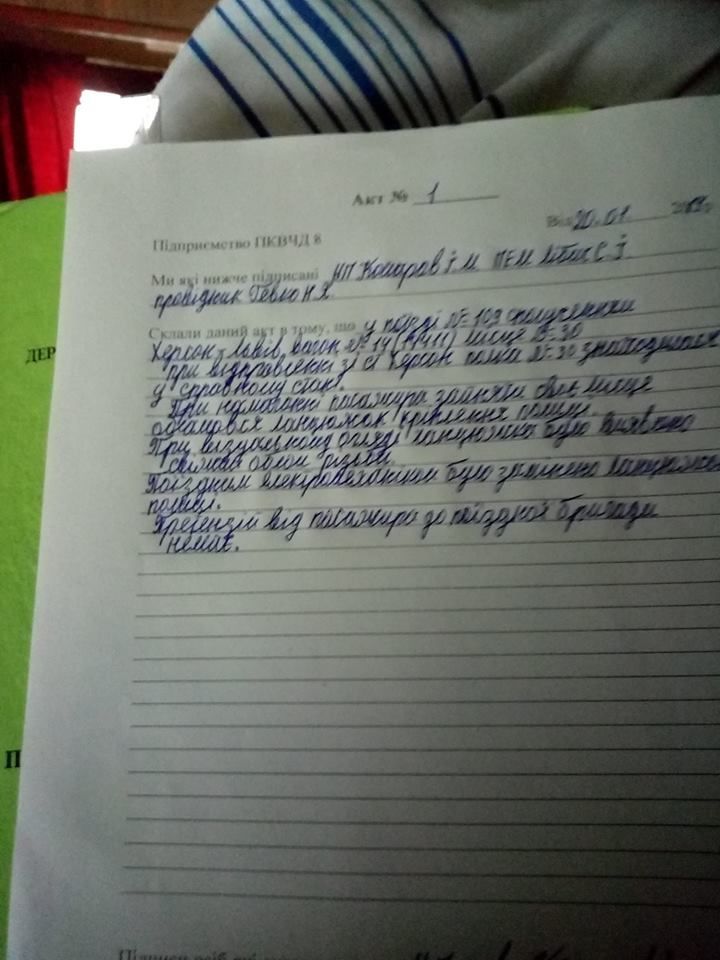 Акт № 1
Від 20.01
Підприємство ПКВЧД 8
Ми які нижче підписані НП Комаров І.М. ПЕМ С.І.
провідник
Склали даний акт в тому, що у поїзді № 109 сполученням
Херсон-Львів, вагон № 14 місце № 30
при відправленні зі ст Херсон полка № 30 знаходилася
у справному стані.
При намаганні пасажира зайняти своє місце
обламався ланцюжок кріплення полиці.
При візуальному огляді ланцюжка було виявлено
облом різьби.
Поїздним електромеханіком було замінено ланцюжок
полиці.
Претензій від пасажира до поїздної бригади
немає.
ДЕР
П